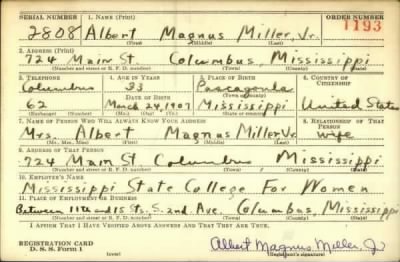 SERIAL NUMBER 1. NAME (Print) ORDER NUMBER
2808 Albert Magnus Miller, Jr. 1193
(First) (Middle) (Last)
2. ADDRESS (Print)
724 Main St. Columbus, Mississippi
(Number and street or R. F. D. number) (Town) (County) (State)
3. TELEPHONE 4. AGE IN YEARS 5. PLACE OF BIRTH 6. COUNTRY OF CITIZENSHIP
Columbus 33 Pascagoula
DATE OF BIRTH (Town or county)
62 March 24, 1907 Mississippi United States
(Exchange) (Number) (Mo.) (Day) (Yr.) (State or country)
7. NAME OF PERSON WHO WILL ALWAYS KNOW YOUR ADDRESS 8. RELATIONSHIP OF THAT PERSON
Mrs. Albert Magnus Miller Jr. wife
(Mr., Mrs., Miss) (First) (Middle) (Last)
9. ADDRESS OF THAT PERSON
724 Main St. Columbus Mississippi
(Number and street or R. F. D. number) (Town) (County) (State)
10. EMPLOYER'S NAME
Mississippi State College For Women
11. PLACE OF EMPLOYMENT OR BUSINESS
Between 11th and 15 Sts. S. 2nd. Ave. Columbus, Mississippi
(Number and street or R. F. D. number) (Town) (County) (State)
I AFFIRM THAT I HAVE VERIFIED ABOVE ANSWERS AND THAT THEY ARE TRUE.
REGISTRATION CARD
D. S. S. Form 1
Albert Magnus Miller, Jr
(Registrant's signature)